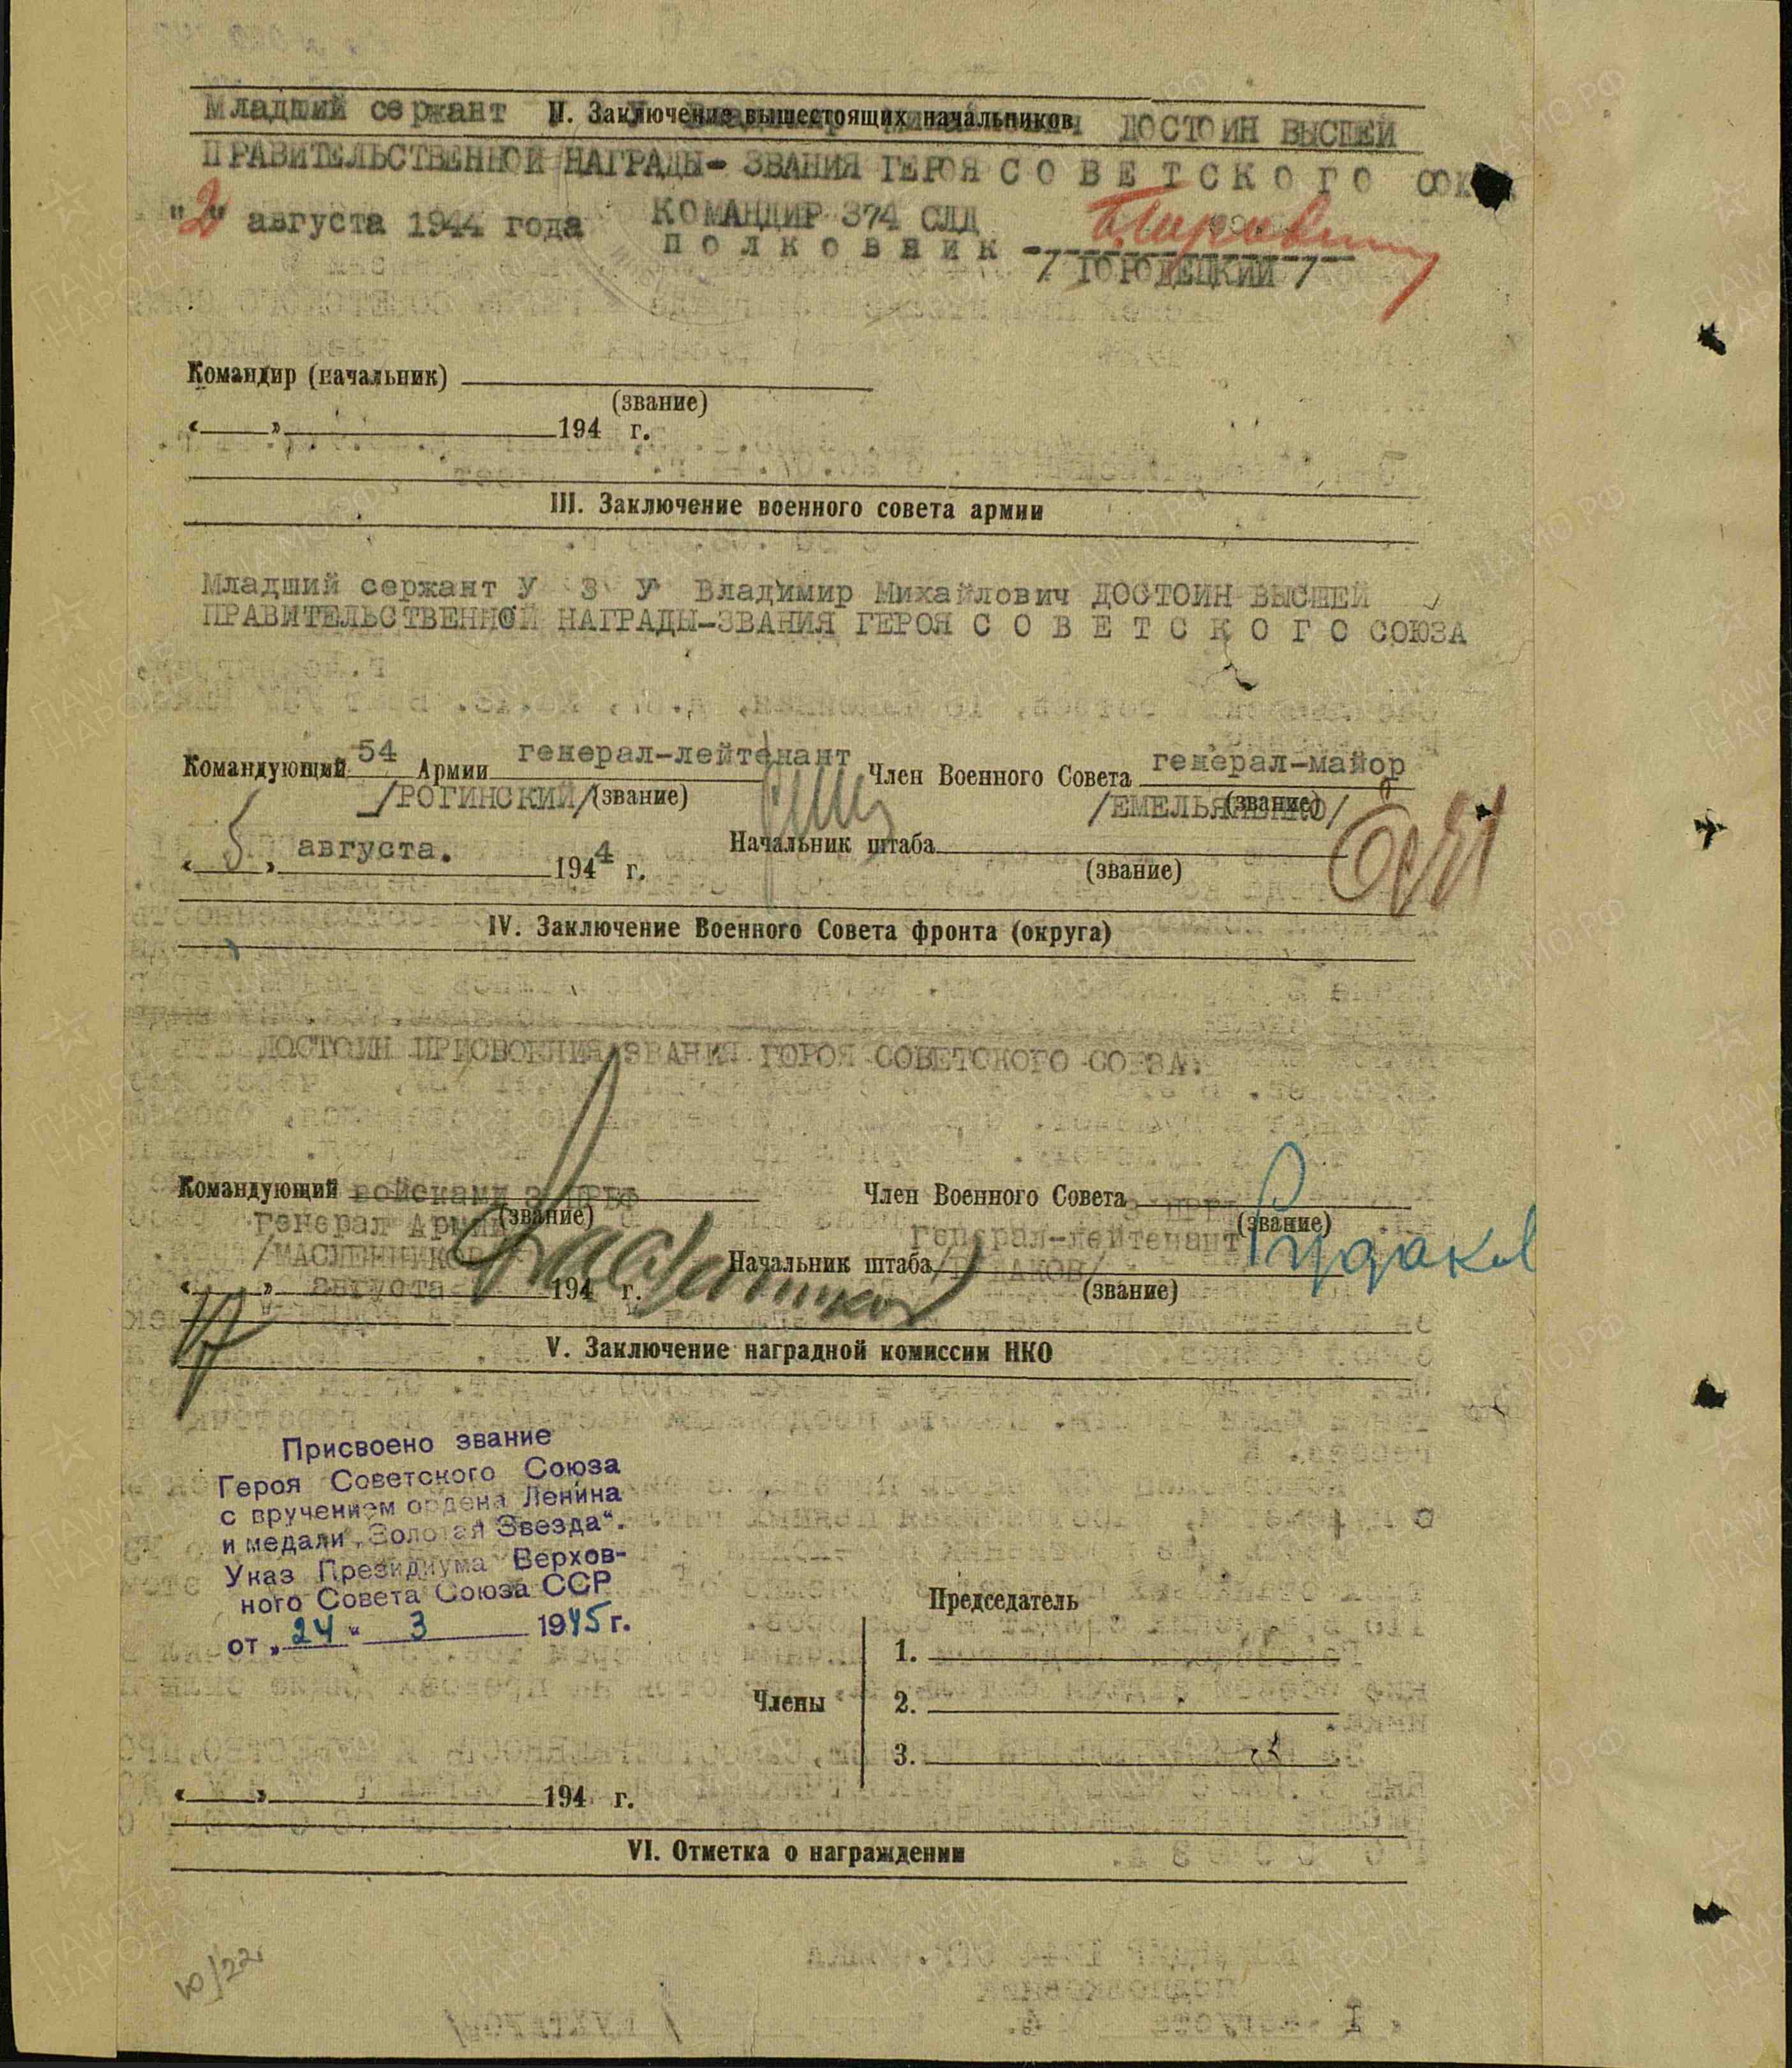 II. Заключение вышестоящих начальников
Младший сержант У З У Владимир Михайлович ДОСТОИН ВЫСШЕЙ
ПРАВИТЕЛЬСТВЕННОЙ НАГРАДЫ- ЗВАНИЯ ГЕРОЯ С О В Е Т С К О Г О
"2" августа 1944 года
КОМАНДИР 374 СЛД
П О Л К О В Н И К
/ГОРОДЕЦКИЙ/
Командир (начальник)
(звание)
« » 194 г.
III. Заключение военного совета армии
Младший сержант У З У Владимир Михайлович ДОСТОИН ВЫСШЕЙ
ПРАВИТЕЛЬСТВЕННОЙ НАГРАДЫ-ЗВАНИЯ ГЕРОЯ С О В Е Т С К О Г О СОЮЗА
Командующий 54 Армии генерал-лейтенант
/РОГИНСКИЙ/ (звание)
Член Военного Совета генерал-майор
/ЕМЕЛЬЯНЕНКО/ (звание)
« 5 » августа. 1944 г.
Начальник штаба
(звание)
IV. Заключение Военного Совета фронта (округа)
ДОСТОИН ПРИСВОЕНИЯ ЗВАНИЯ ГЕРОЯ СОВЕТСКОГО СОЮЗА.
Командующий войсками 3 ПРБФ
Генерал Армии (звание)
/МАСЛЕННИКОВ
Член Военного Совета 3 ПРБФ
Генерал-лейтенант (звание)
Рудаков
Начальник штаба /РУДАКОВ/
(звание)
« » августа 194 г.
Масленников
V. Заключение наградной комиссии НКО
Присвоено звание
Героя Советского Союза
с вручением ордена Ленина
и медали „Золотая Звезда“.
Указ Президиума Верхов-
ного Совета Союза ССР
от „24“ 3 1945 г.
Председатель
Члены
1.
2.
3.
« » 194 г.
VI. Отметка о награждении
10/22